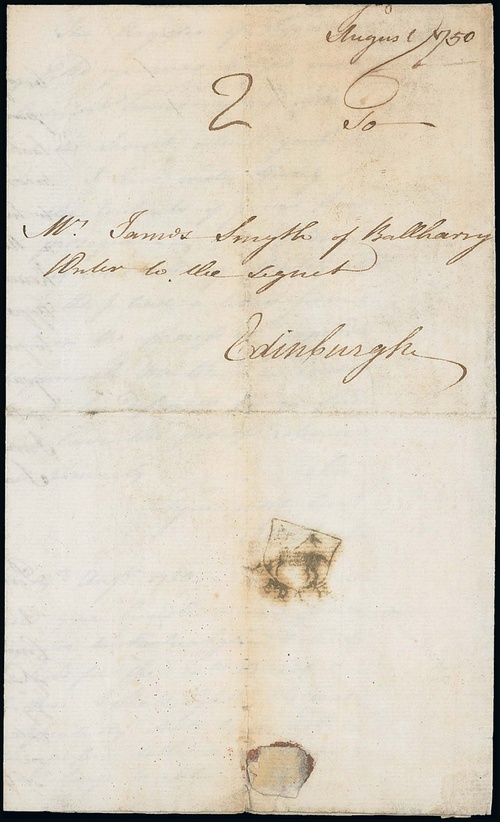 August 1750
2 To
Mr James Smyth of Ballharry
Writer to the signet
Edinburgh